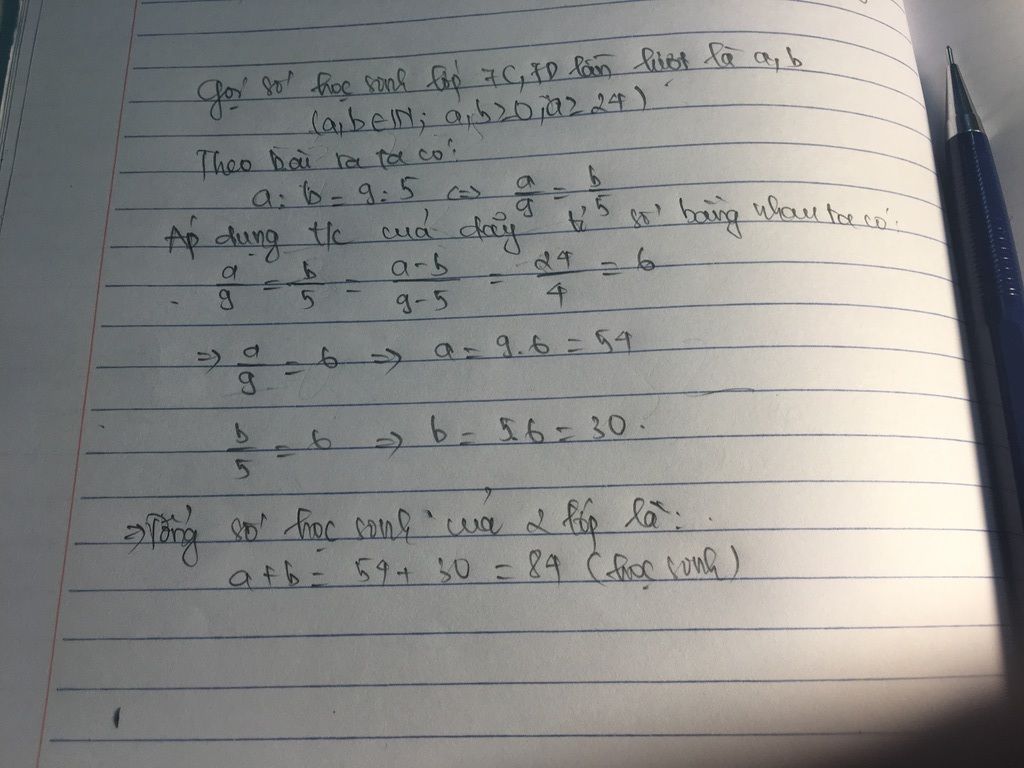 Gọi số học sinh lớp 7C, 7D lần lượt là a, b
(a, b ∈ N; a, b > 0, a ≥ 24)
Theo bài ra ta có:
a : b = 9 : 5 <=> a/9 = b/5
Áp dụng t/c của dãy tỉ số bằng nhau ta có:
a/9 = b/5 = (a-b)/(9-5) = 24/4 = 6
=> a/9 = 6 => a = 9.6 = 54
b/5 = 6 => b = 5.6 = 30.
=> Tổng số học sinh của 2 lớp là:
a + b = 54 + 30 = 84 (học sinh)